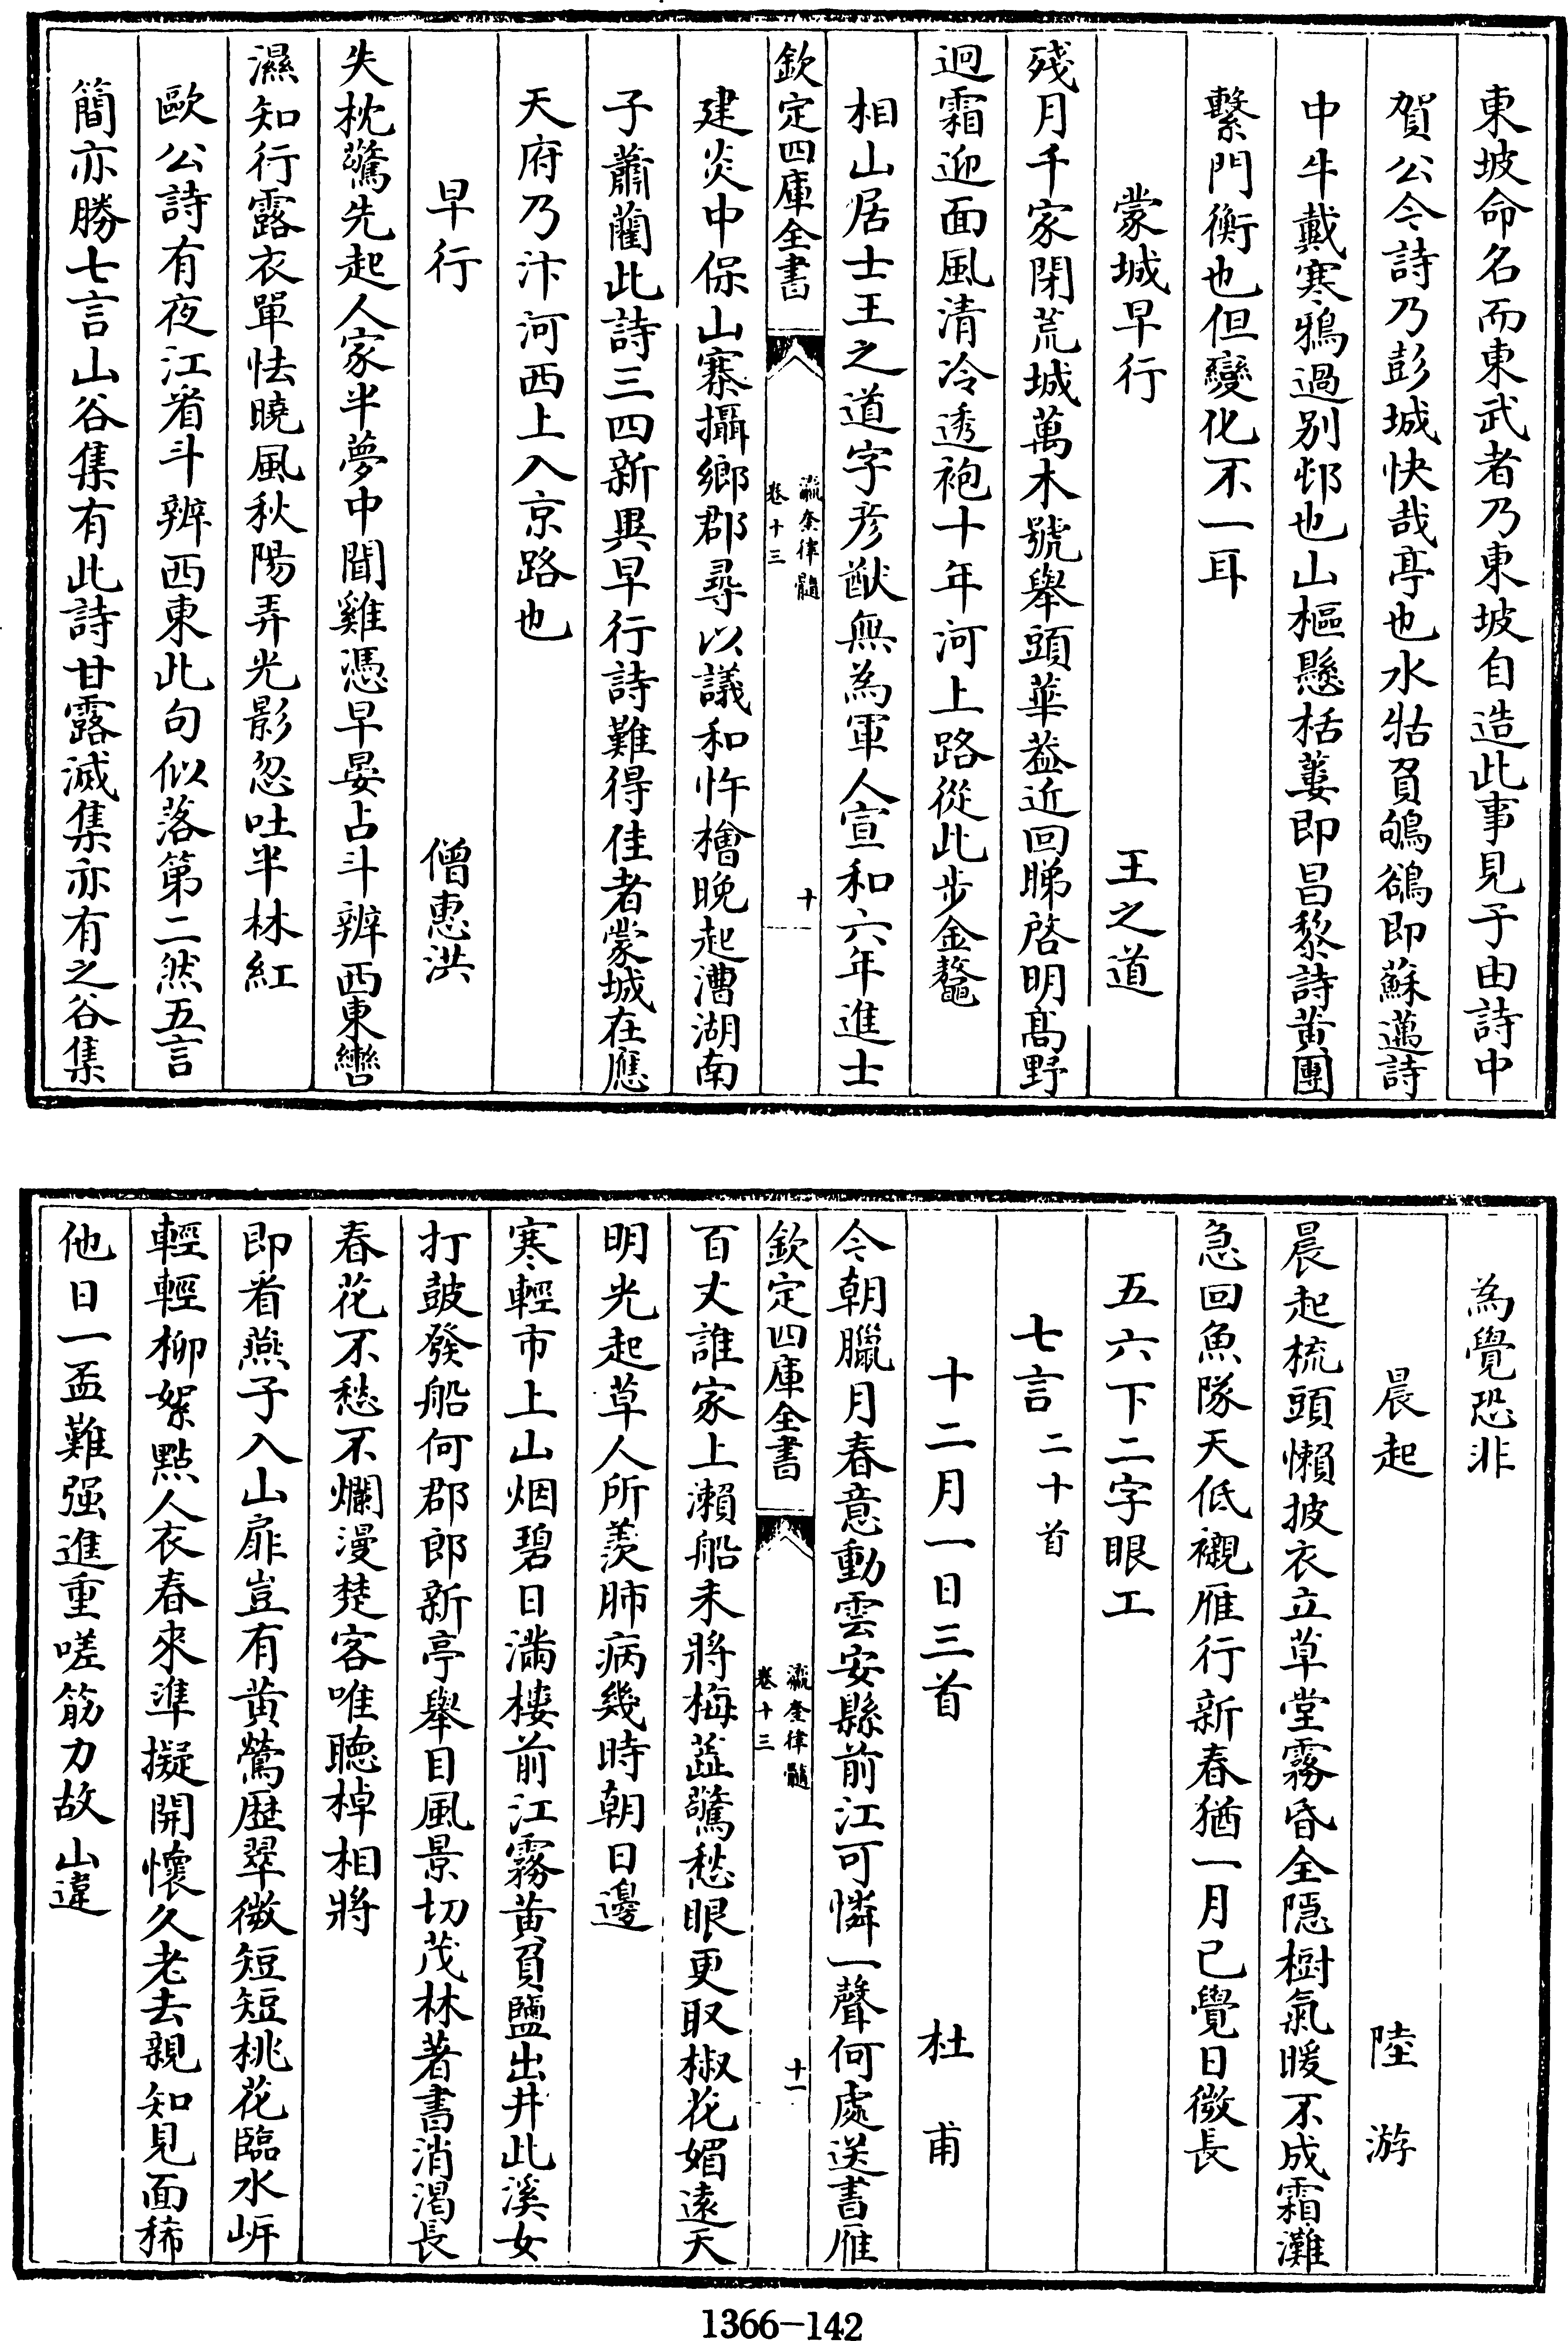 東坡命名而東武者乃東坡自造此事見子由詩中
賀公今詩乃彭城快哉亭也水牯負鴝鵒即蘇邁詩
中牛戴寒鴉過别邨也山樞懸栝蔞即昌黎詩黄團
繫門衡也但變化不一耳
蒙城早行 王之道
殘月千家閉荒城萬木號舉頭華葢近回睇啓明髙野
迥霜迎面風清冷透袍十年河上路從此步金鼇
相山居士王之道字彦猷無為軍人宣和六年進士
欽定四庫全書
瀛奎律髓
卷十三
十
建炎中保山寨攝鄉郡尋以議和忤檜晚起漕湖南
子蕭藺此詩三四新異早行詩難得佳者蒙城在應
天府乃汴河西上入京路也
早行 僧惠洪
失枕驚先起人家半夢中聞雞憑早晏占斗辨西東轡
濕知行露衣單怯曉風秋陽弄光影忽吐半林紅
歐公詩有夜江看斗辨西東此句似落第二然五言
簡亦勝七言山谷集有此詩甘露滅集亦有之谷集
為覺恐非
晨起 陸游
晨起梳頭懶披衣立草堂霧昏全隠樹氣暖不成霜灘
急回魚隊天低襯雁行新春猶一月已覺日微長
五六下二字眼工
七言 二十首
十二月一日三首 杜甫
今朝臘月春意動雲安縣前江可憐一聲何處送書雁
欽定四庫全書
瀛奎律髓
卷十三
十一
百丈誰家上瀨船未將梅蕋驚愁眼更取椒花媚遠天
明光起草人所羨肺病幾時朝日邊
寒輕市上山烟碧日滿樓前江霧黄負鹽出井此溪女
打鼓發船何郡郎新亭舉目風景切茂林著書消渴長
春花不愁不爛漫楚客唯聽棹相將
即看燕子入山扉豈有黄鶯歴翠微短短桃花臨水岍
輕輕柳絮點人衣春來準擬開懷久老去親知見面稀
他日一盃難强進重嗟筋力故山違
1366—142